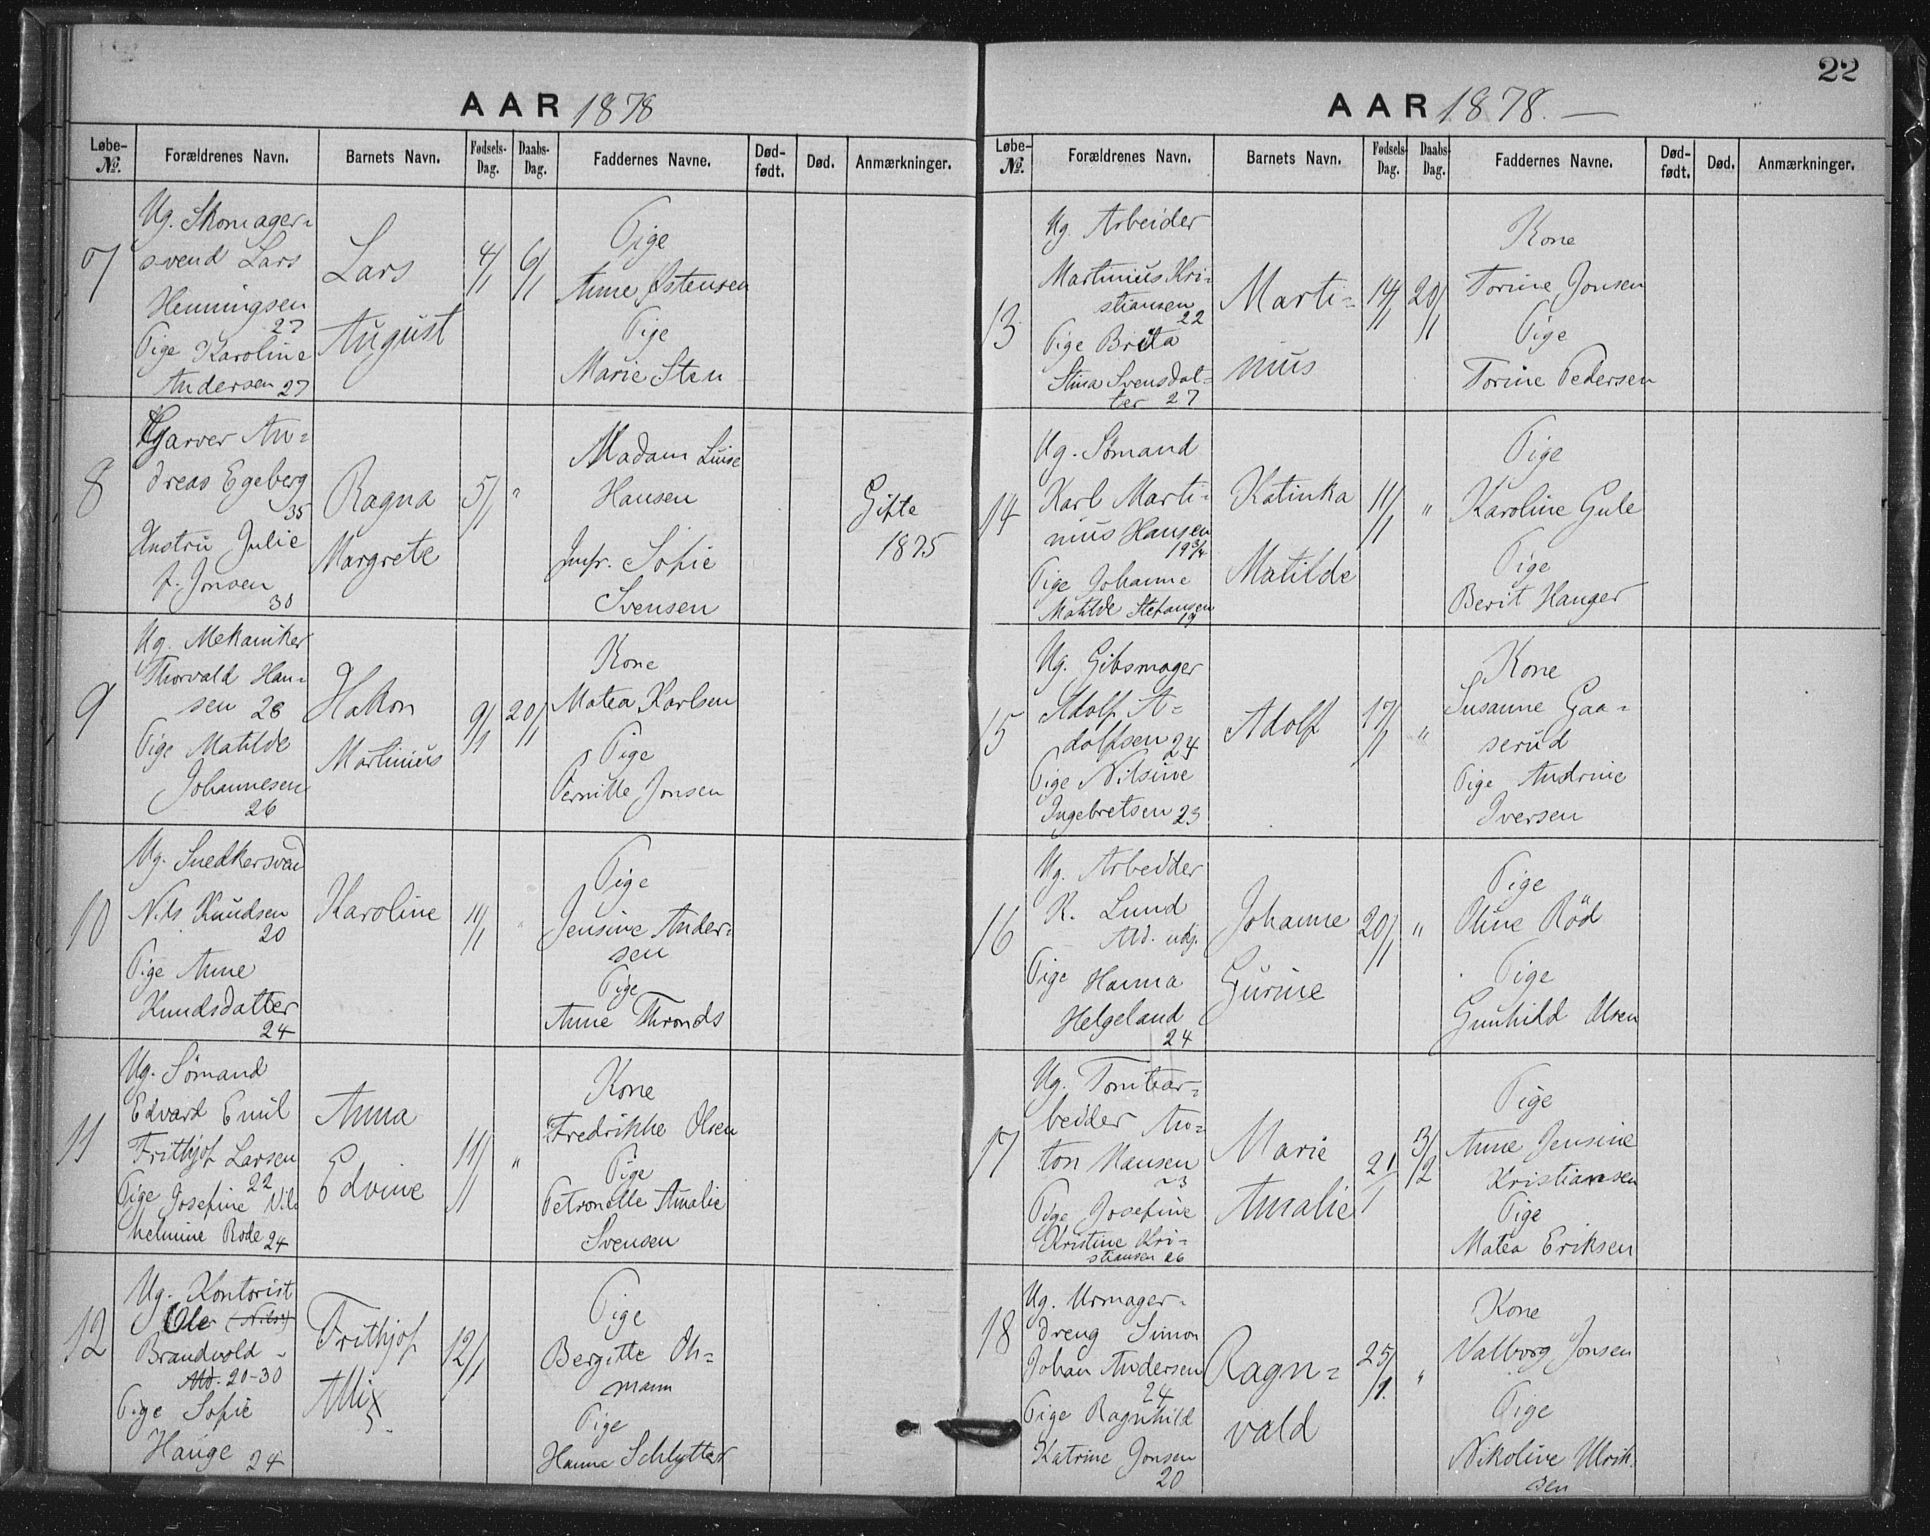 AAR 1878
Løbe-
№.
Forældrenes Navn.
Barnets Navn.
Fødsels-
Dag.
Daabs-
Dag.
Faddernes Navne.
Død-
født.
Død.
Anmærkninger.
7
Ug. Skomager-
svend Lars
Henningsen
27
Pige Karoline
Andersen 27
Lars
August
4/1
6/1
Pige
Anne Østensen
Pige
Marie Sten
8
Garver An-
dreas Egeberg
35
Hustru Julie
f. Jonsen
30
Ragna
Margrete
5/1
"
Madam Luise
Hansen
Jmfr. Sofie
Svensen
Gifte
1875
9
Ug. Mekaniker
Thorvald Han-
sen 28
Pige Matilde
Johannesen
26
Hakon
Martinius
9/1
20/1
Kone
Matea Karlsen
Pige
Pernille Jonsen
10
Ug. Snedkersvend
Nils Knudsen
20
Pige Anne
Knudsdatter
24
Karoline
11/1
"
Pige
Jensine Ander-
sen
Pige
Anne Thronds
11
Ug. Sømand
Edvard Emil
Frithjof Larsen
22
Pige Josefine Vil-
helmine Rode 24
Anna
Edvine
11/1
"
Kone
Fredrikke Olsen
Pige
Petronelle Amalie
Svensen
12
Ug. Kontorist
Ole (Nils)
Brandvold -
Ald. 20-30
Pige Sofie
Hauge 24
Frithjof
12/1
Pige
Bergitte Oh-
mann
Pige
Hanna Schlytter
22
AAR 1878. —
Løbe-
№.
Forældrenes Navn.
Barnets Navn.
Fødsels-
Dag.
Daabs-
Dag.
Faddernes Navne.
Død-
født.
Død.
Anmærkninger.
13
Ug. Arbeider
Martinius Kri-
stiansen
22
Pige Brita
Stina Svensdat-
ter 27
Marti-
nius
14/1
20/1
Kone
Torine Jonsen
Pige
Torine Pedersen
14
Ug. Sømand
Karl Marti-
nius Hansen
19 3/4
Pige Johanne
Matilde Stefansen
19
Katinka
Matilde
11/1
"
Pige
Karoline Gule
Pige
Berit Hanger
15
Ug. Gibsmager
Adolf A-
dolfsen 24
Pige Nilsine
Ingebretsen 23
Adolf
17/1
"
Kone
Susanne Gaa-
serud
Pige Andrine
Iversen
16
Ug. Arbeider
K. Lund
Ald. udg.
Pige Hanna
Helgeland
24
Johanne
Gurine
20/1
"
Pige
Oline Rød
Pige
Gunhild Olsen
17
Ug. Tomtear-
beider An-
ton Hansen
23
Pige Josefine
Kristine Kri-
stiansen 26
Marie
Amalie
21/1
3/2
Pige
Anne Jensine
Kristiansen
Pige
Matea Eriksen
18
Ug. Urmager-
dreng Simon
Johan Andersen
24
Pige Ragnhild
Katrine Jonsen
20
Ragn-
vald
25/1.
"
Kone
Valborg Jonsen
Pige
Nikoline Ulrik-
sen